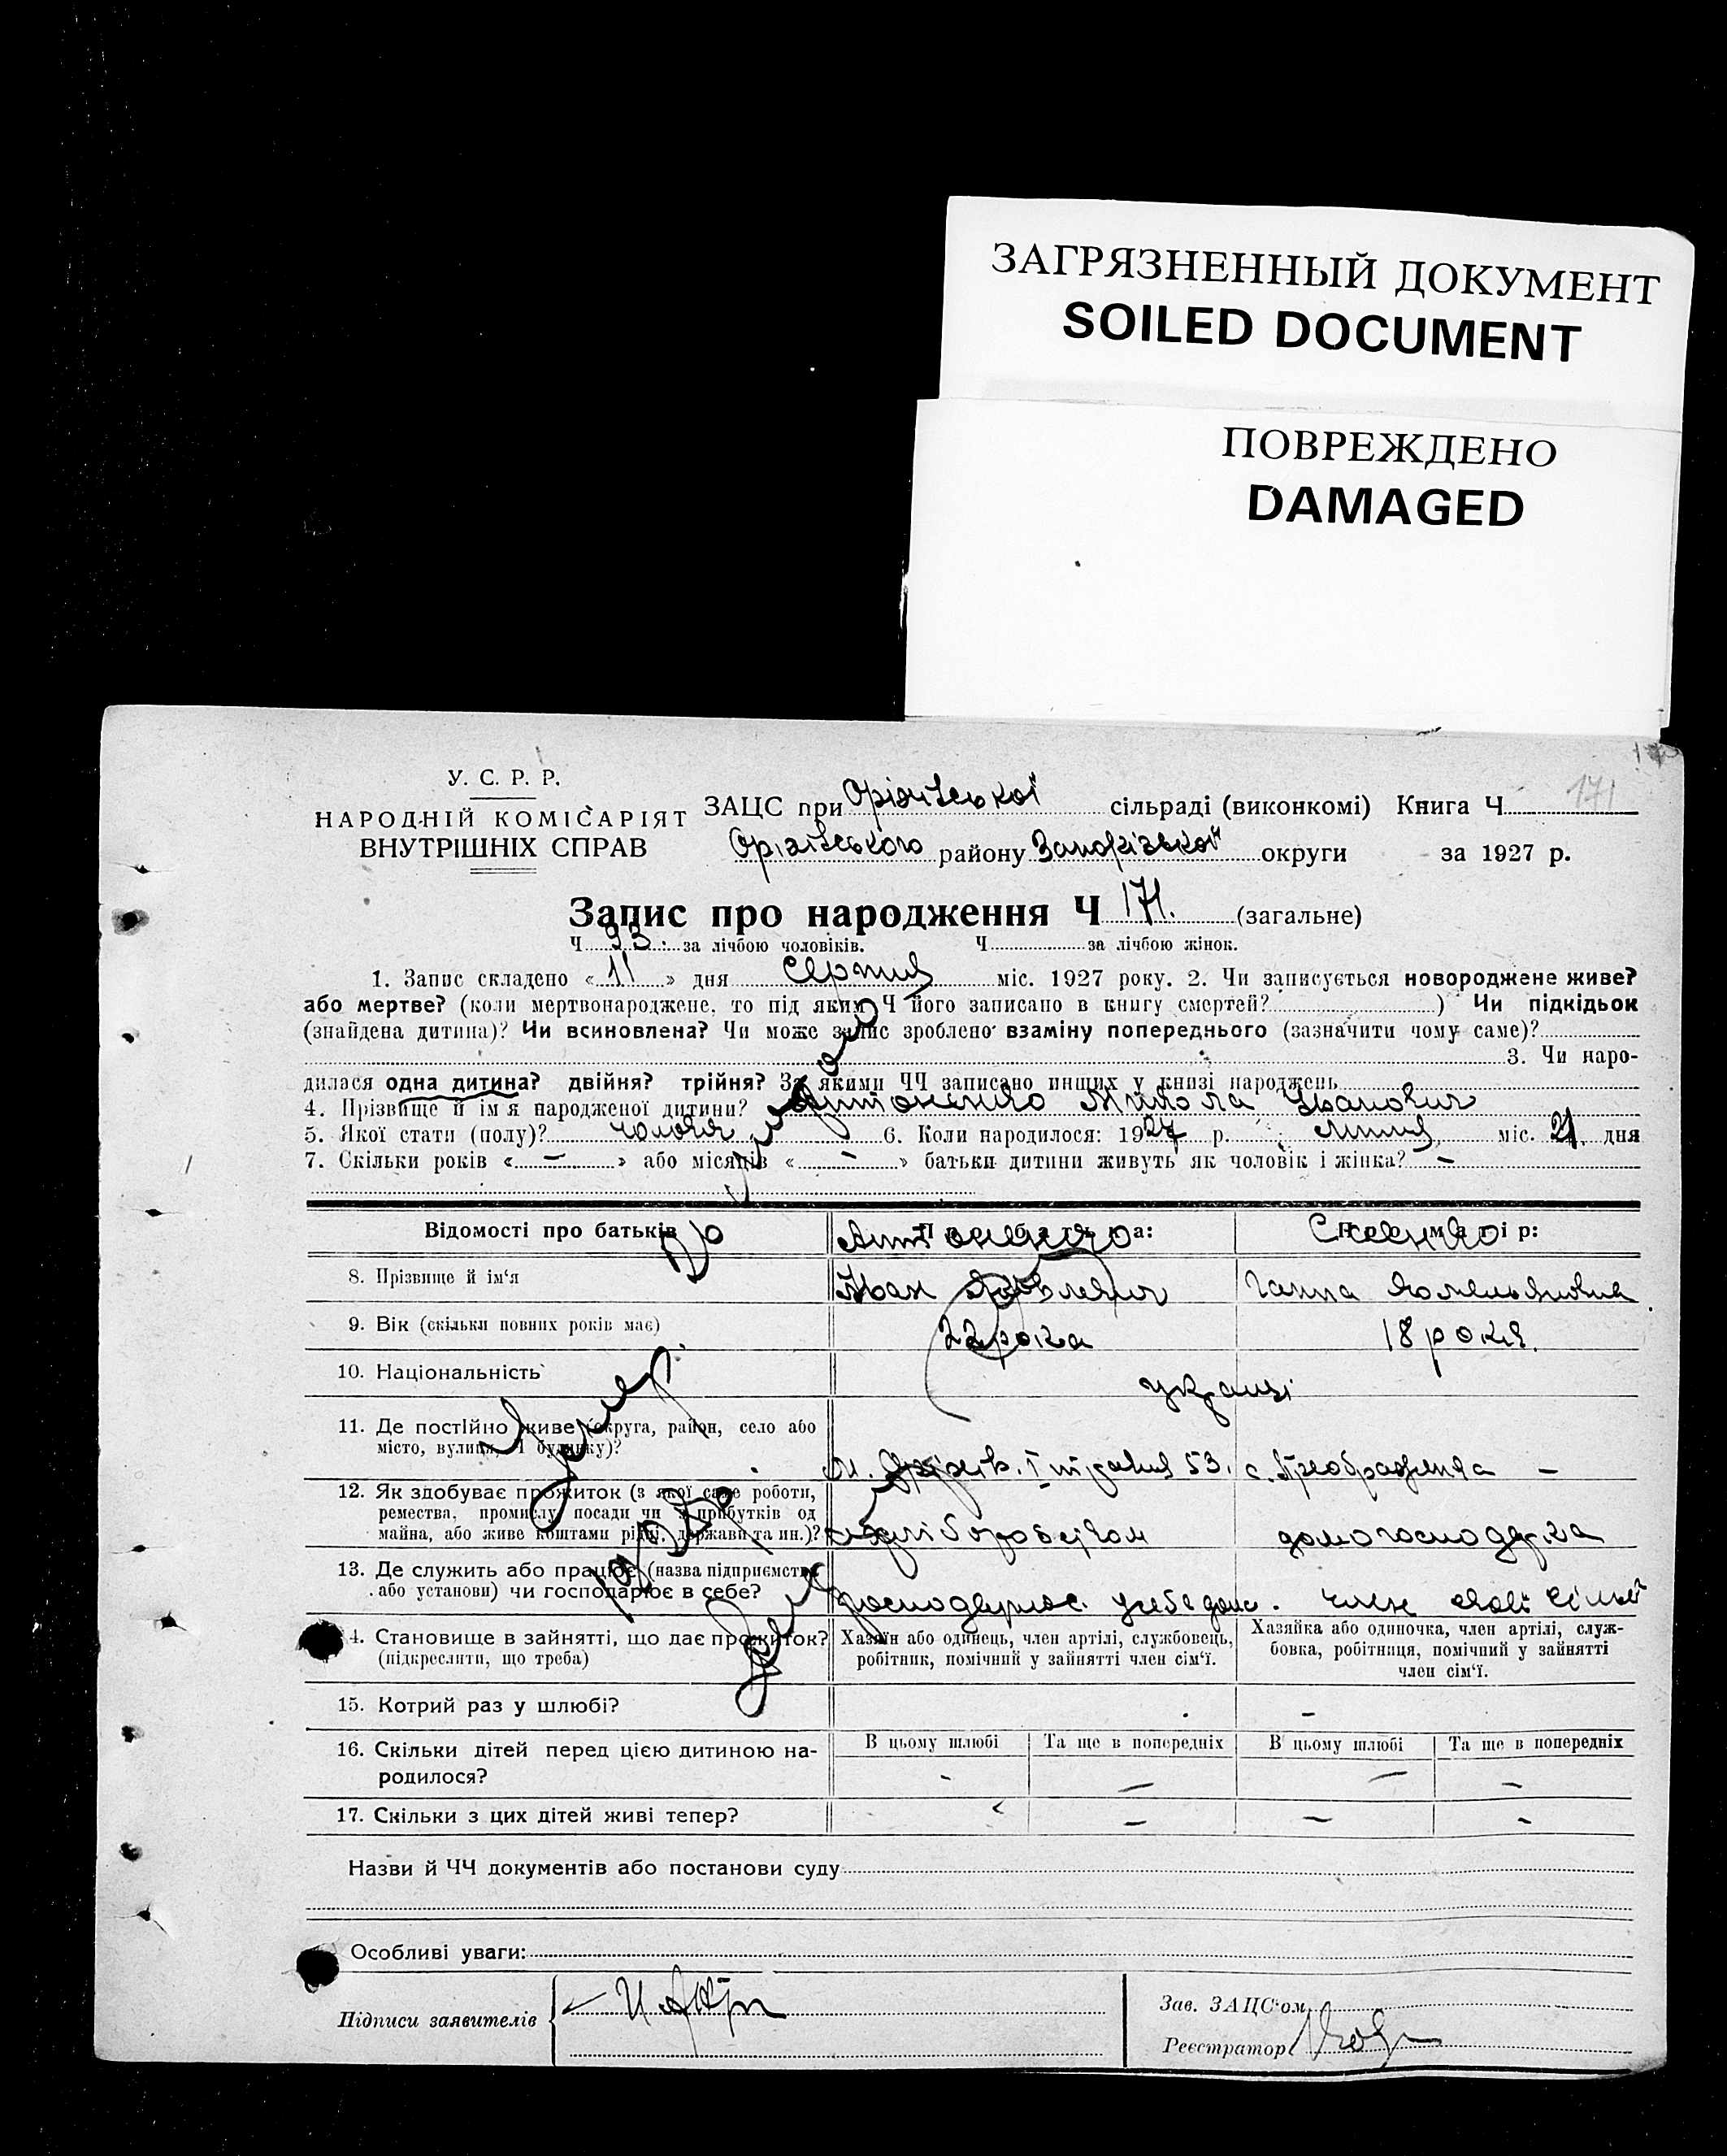 ЗАГРЯЗНЕННЫЙ ДОКУМЕНТ
SOILED DOCUMENT
ПОВРЕЖДЕНО
DAMAGED
171
У. С. Р. Р.
НАРОДНІЙ КОМІСАРІЯТ
ВНУТРІШНІХ СПРАВ
ЗАЦС при Оріхівської сільраді (виконкомі) Книга Ч
Оріхівського району Запорізької округи за 1927 р.
Запис про народження Ч 171. (загальне)
Ч 93. за лічбою чоловіків. Ч за лічбою жінок.
1. Запис складено «11» дня серпня міс. 1927 року. 2. Чи записується новороджене живе?
або мертве? (коли мертвонароджене, то під яким Ч його записано в книгу смертей? ) Чи підкідьок
(знайдена дитина)? Чи всиновлена? Чи може запис зроблено взаміну попереднього (зазначити чому саме)?
3. Чи наро-
дилася одна дитина? двійня? трійня? За якими ЧЧ записано инших у книзі народжень
4. Прізвище й ім'я народженої дитини? Антоненко Микола Іванович
5. Якої стати (полу)? чоловіч 6. Коли народилося: 1927 р. липня міс. 21 дня
7. Скільки років « – » або місяців « – » батьки дитини живуть як чоловік і жінка? –
Відомості про батьків
Про батька:
Про матір:
8. Прізвище й ім'я
Антоненко
Іван Яковлевич
Ганна
9. Вік (скільки повних років має)
22 рока
18 років.
10. Національність
українці
11. Де постійно живе (округа, район, село або
місто, вулиця, і будинку)?
53.
с. Преображенка –
12. Як здобуває прожиток (з якої саме роботи,
ремества, промислу, посади чи з прибутків од
майна, або живе коштами рідні, держави та ин.)?
хліборобством
домогосподарка
13. Де служить або працює (назва підприємства
або установи) чи господарює в себе?
член своєї сім'ї
14. Становище в зайнятті, що дає прожиток?
(підкреслити, що треба)
Хазяїн або одинець, член артілі, службовець,
робітник, помічний у зайнятті член сім'ї.
Хазяйка або одиночка, член артілі, служ-
бовка, робітниця, помічний у зайнятті
член сім'ї.
15. Котрий раз у шлюбі?
–
16. Скільки дітей перед цією дитиною на-
родилося?
В цьому шлюбі Та ще в попередніх В цьому шлюбі Та ще в попередніх
– – – –
17. Скільки з цих дітей живі тепер?
– – –
Назви й ЧЧ документів або постанови суду
Особливі уваги:
Підписи заявителів
Зав. ЗАЦС'ом
Реєстратор